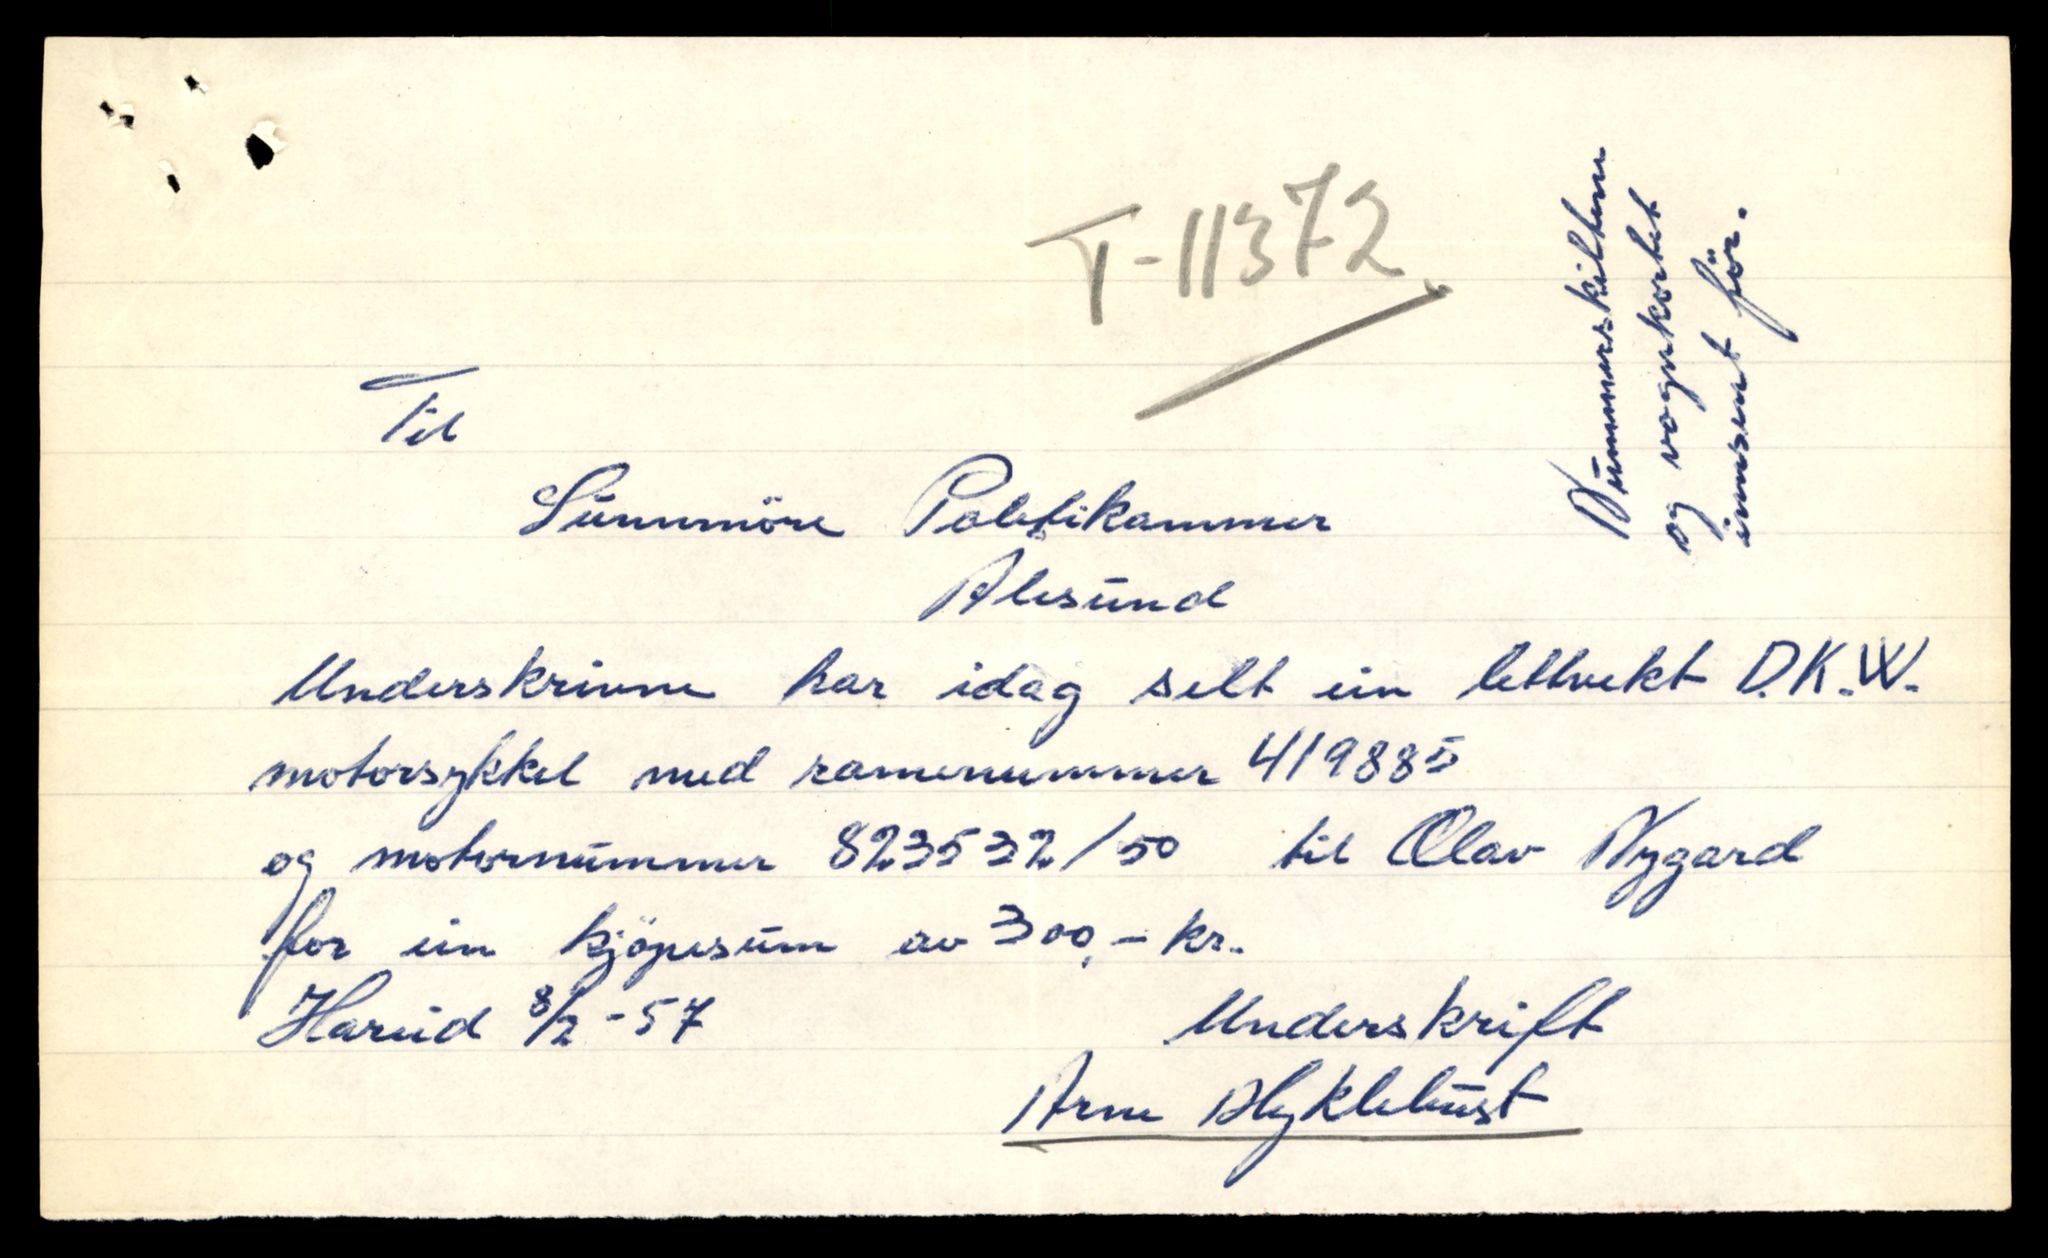 T-11372
Nummerskiltene
og vognkortet
innsent før.
Til
Sunnmöre Politikammer
Ålesund
Underskrivne har idag selt ein lettvekt D.K.W.
motorsykkel med ramenummer 419885
og motornummer 823532/50 til Olav Nygard
for ein kjöpesum av 300,- kr.
Hareid 8/2-57
Underskrift
Arne Myklebust